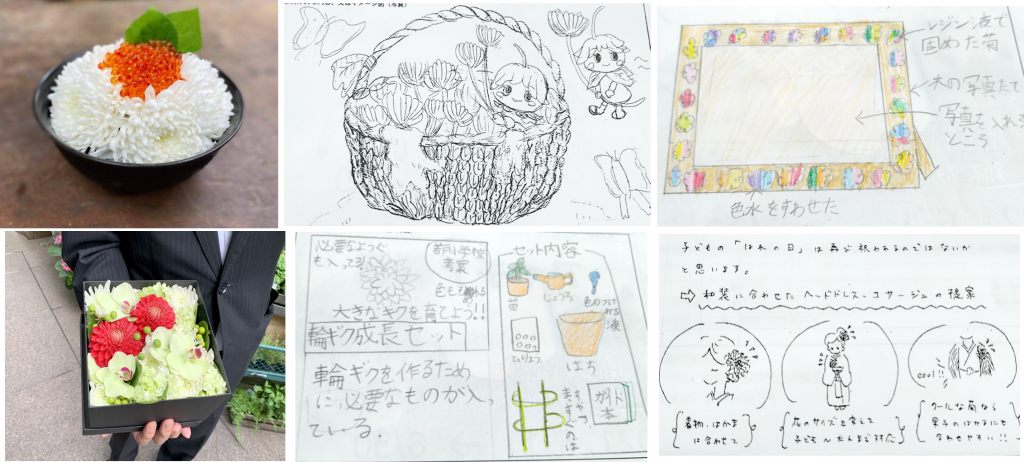 又はイメージ図(写真)
レジン液で
固めた菊
木の写真たて
写真を入れる
ところ
色水をすわせた
必要なようぐ
も入ってる!
小学校
考案
大きなキクを育てよう!!
輪ギク成長セット
輪ギクを作るため
に必要なものが入っ
ている。
セット内容
苗
じょうろ
液
ひりょう
はち
ガイド
本
子どもの「はれの日」は再び祝われるのではないか
と思います。
⇨ 和装に合わせたヘッドドレス・コサージュの提案
cool!!
着物・はかま
に合わせて
花のサイズを変えて
子ども〜大人まで対応
クールな菊なら
男子のはかまにも
合わせやすい!!